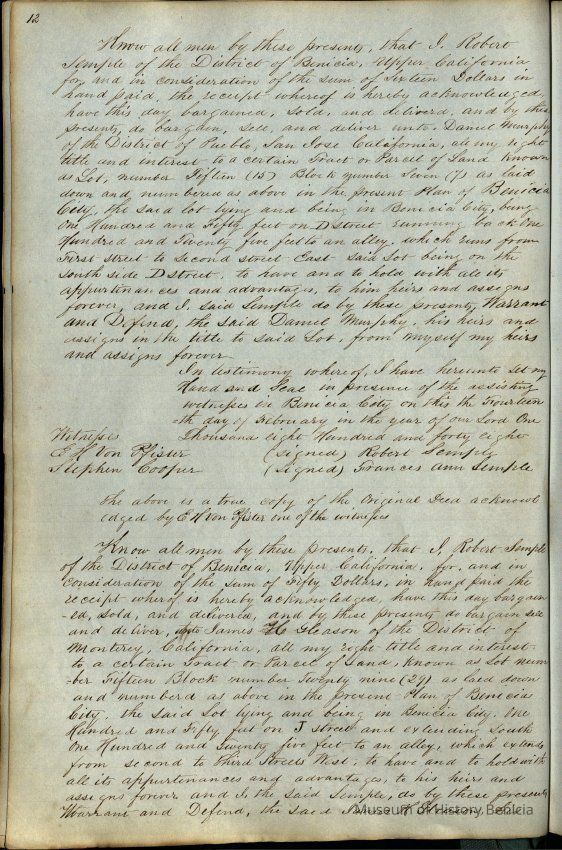 12
Know all men by these presents, that I, Robert
Semple of the District of Benicia, Upper California
for, and in consideration of the sum of Sixteen Dollars in
hand paid, the receipt whereof is hereby acknowledged,
have this day bargained, sold, and deliverd, and by these
presents, do bargain, sell, and deliver unto Daniel Murphy
of the District of Pueblo, San Jose California, all my right
title and interest to a certain Tract or Parcel of Land known
as Lot, number Fifteen (15) Block number Seven (7) as laid
down and numbered as above in the present Plan of Benicia
City, the said lot lying and being in Benicia City, being
One Hundred and Fifty feet on D Street running back One
Hundred and Twenty five feet to an alley, which runs from
First street to Second street East said Lot being on the
South side D street, to have and to hold with all its
appurtinances and advantages, to him heirs and assigns
forever, and I, said Semple do by these presents, Warrant
and Defind, the said Daniel Murphy, his heirs and
assigns in the title to said Lot, from myself my heirs
and assigns forever
In testimony whereof, I have hereunto set my
Hand and Seal in presence of the assisting
witnesses in Benicia City on this the Fourteen
-th day of February in the year of our Lord One
Thousand eight Hundred and forty eight
Witnesses
E. H. Von Pfister (Signed) Robert Semple
Stephen Cooper (Signed) Frances Ann Semple
The above is a true copy of the Original Deed acknowl
edged by E H Von Pfister one of the witnesses
Know all men by these presents, that I, Robert Semple
of the District of Benicia, Upper California, for, and in
consideration of the sum of Fifty Dollars, in hand paid the
receipt wherof is hereby acknowledged, have this day bargain
-ed, sold, and delivered, and by these presents do bargain sell
and deliver, unto James H Gleason of the District of
Monterey, California, all my right title and interest
to a certain Tract or Parcel of Land, known as Lot num
-ber Fifteen Block number Twenty nine (29) as laid down
and numberd as above in the present Plan of Benicia
City, the said Lot lying and being in Benicia City, One
Hundred and Fifty feet on J street and extending South
One Hundred and twenty five feet to an alley, which extends
from Second to Third Streets West, to have and to hold with
all its appurtinances and advantages, to his heirs and
assigns forever and I, the said Semple, do by these presents
Warrant and Defend, the said James H Gleason, his
Museum of History Benicia